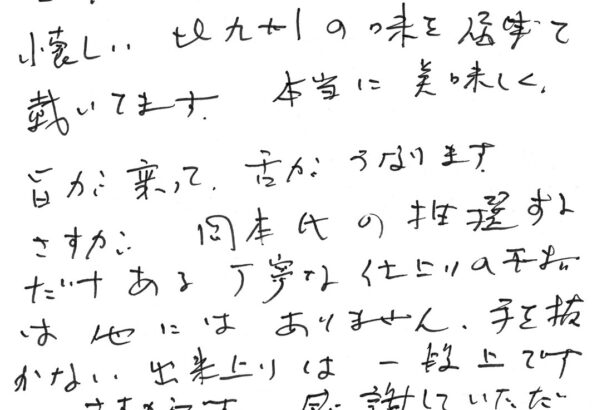 懐しい 北九州の味を届けて
戴いてます. 本当に 美味しく,
旨が乗って, 舌が うなります.
さすが 岡本氏の推選する
だけある 丁寧な仕上りの干物
は他には ありません. 手を抜
かない 出来上りは 一段上です
していただ